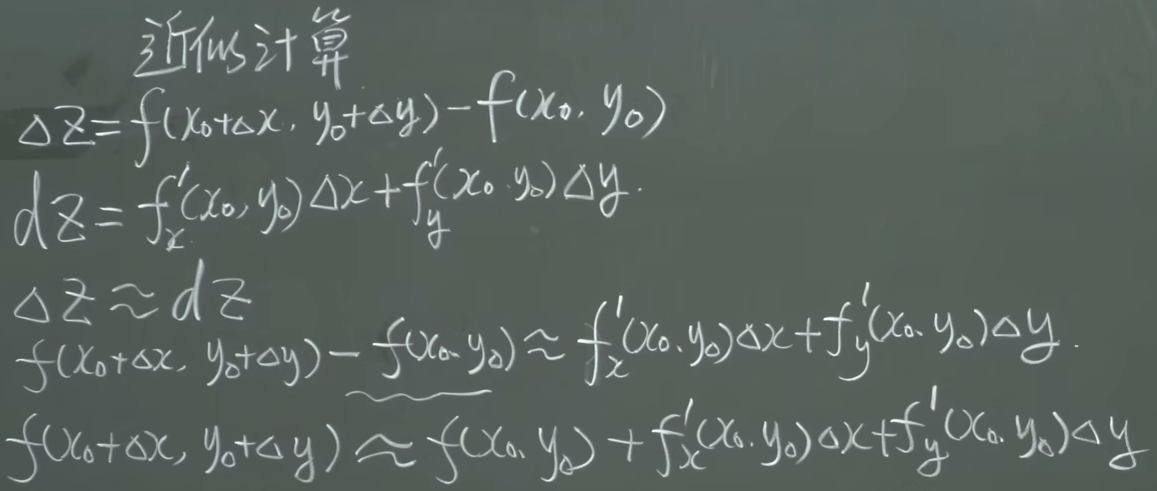 近似计算
Δz=f(x₀+Δx, y₀+Δy)-f(x₀, y₀)
dz=f'ₓ(x₀, y₀)Δx+f'ᵧ(x₀, y₀)Δy.
Δz≈dz
f(x₀+Δx, y₀+Δy)-f(x₀, y₀)≈f'ₓ(x₀, y₀)Δx+f'ᵧ(x₀, y₀)Δy.
f(x₀+Δx, y₀+Δy)≈f(x₀, y₀)+f'ₓ(x₀, y₀)Δx+f'ᵧ(x₀, y₀)Δy